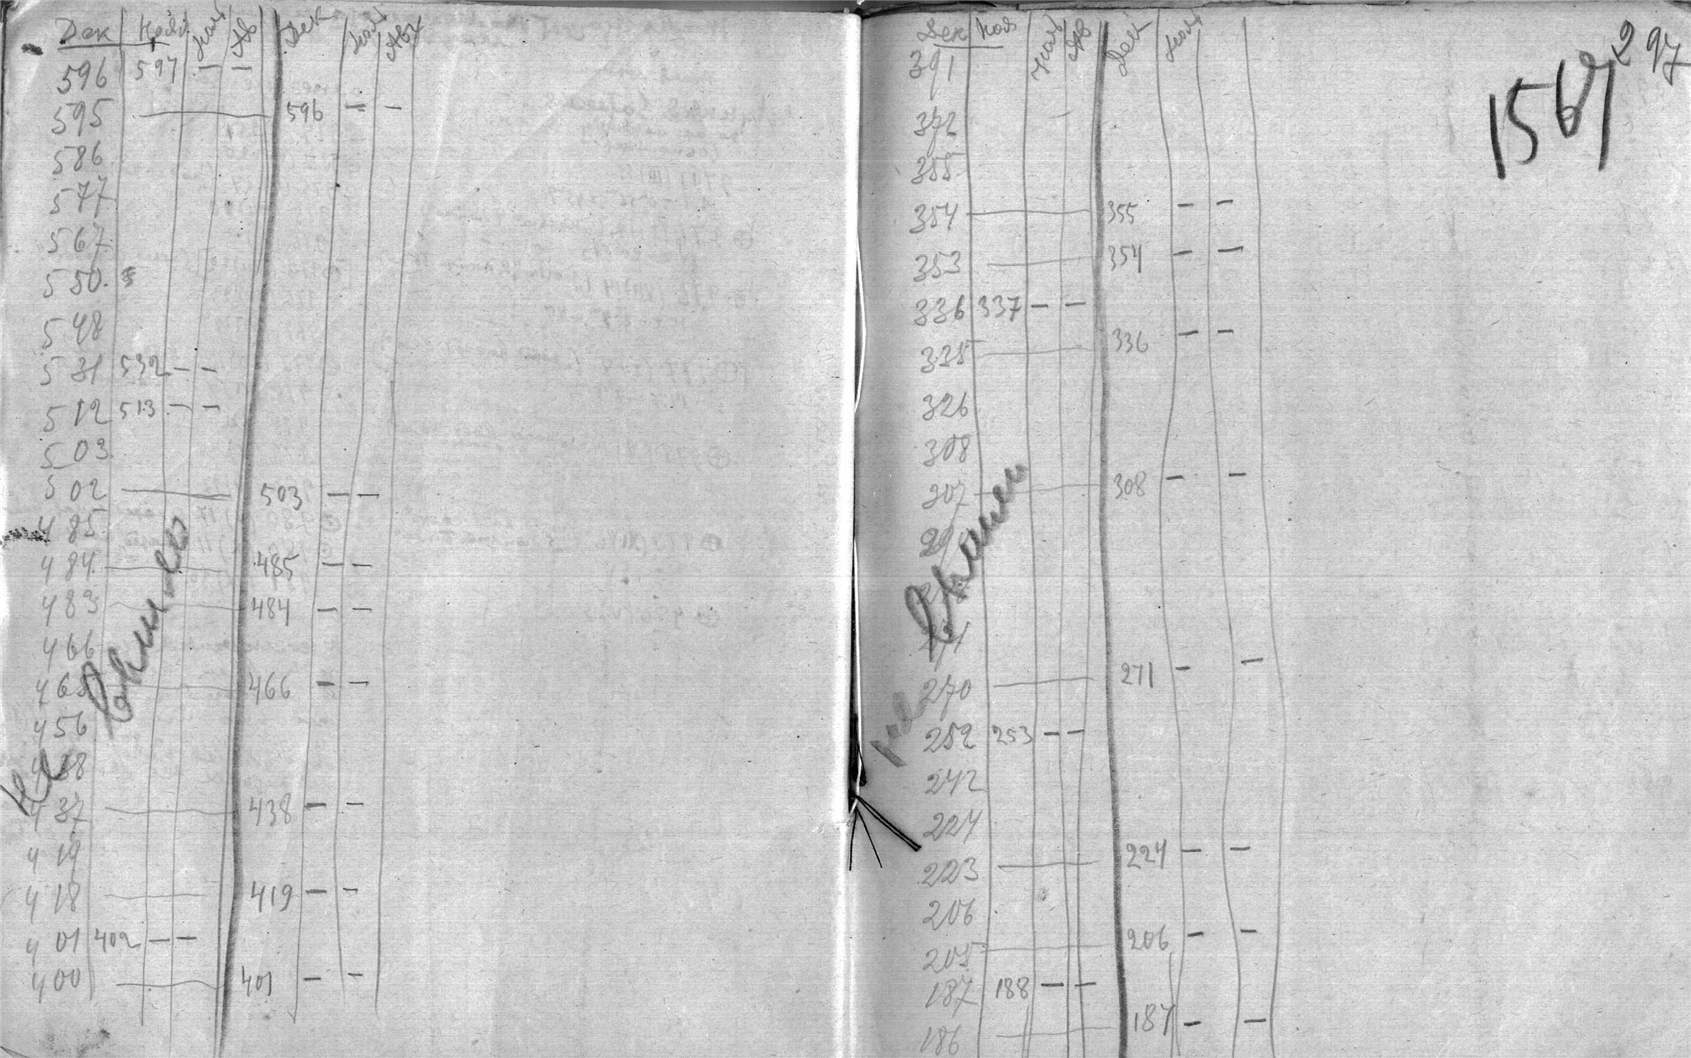 Дек
596 597 — —
595 — 596 — —
586
577
567
550.
548
531 532 — —
512 513 — —
503
502 — 503 — —
485
484 — 485 — —
483 — 484 — —
466
465 — 466 — —
456
438
437 — 438 — —
419
418 — 419 — —
401 402 — —
400 — 401 — —
297
1567
Дек Ноя
391
372
355
354 — 355 — —
353 — 354 — —
336 337 — —
335 — 336 — —
326
308
307 — 308 — —
271
270 — 271 — —
252 253 — —
242
224
223 — 224 — —
206
205 — 206 — —
187 188 — —
186 — 187 — —